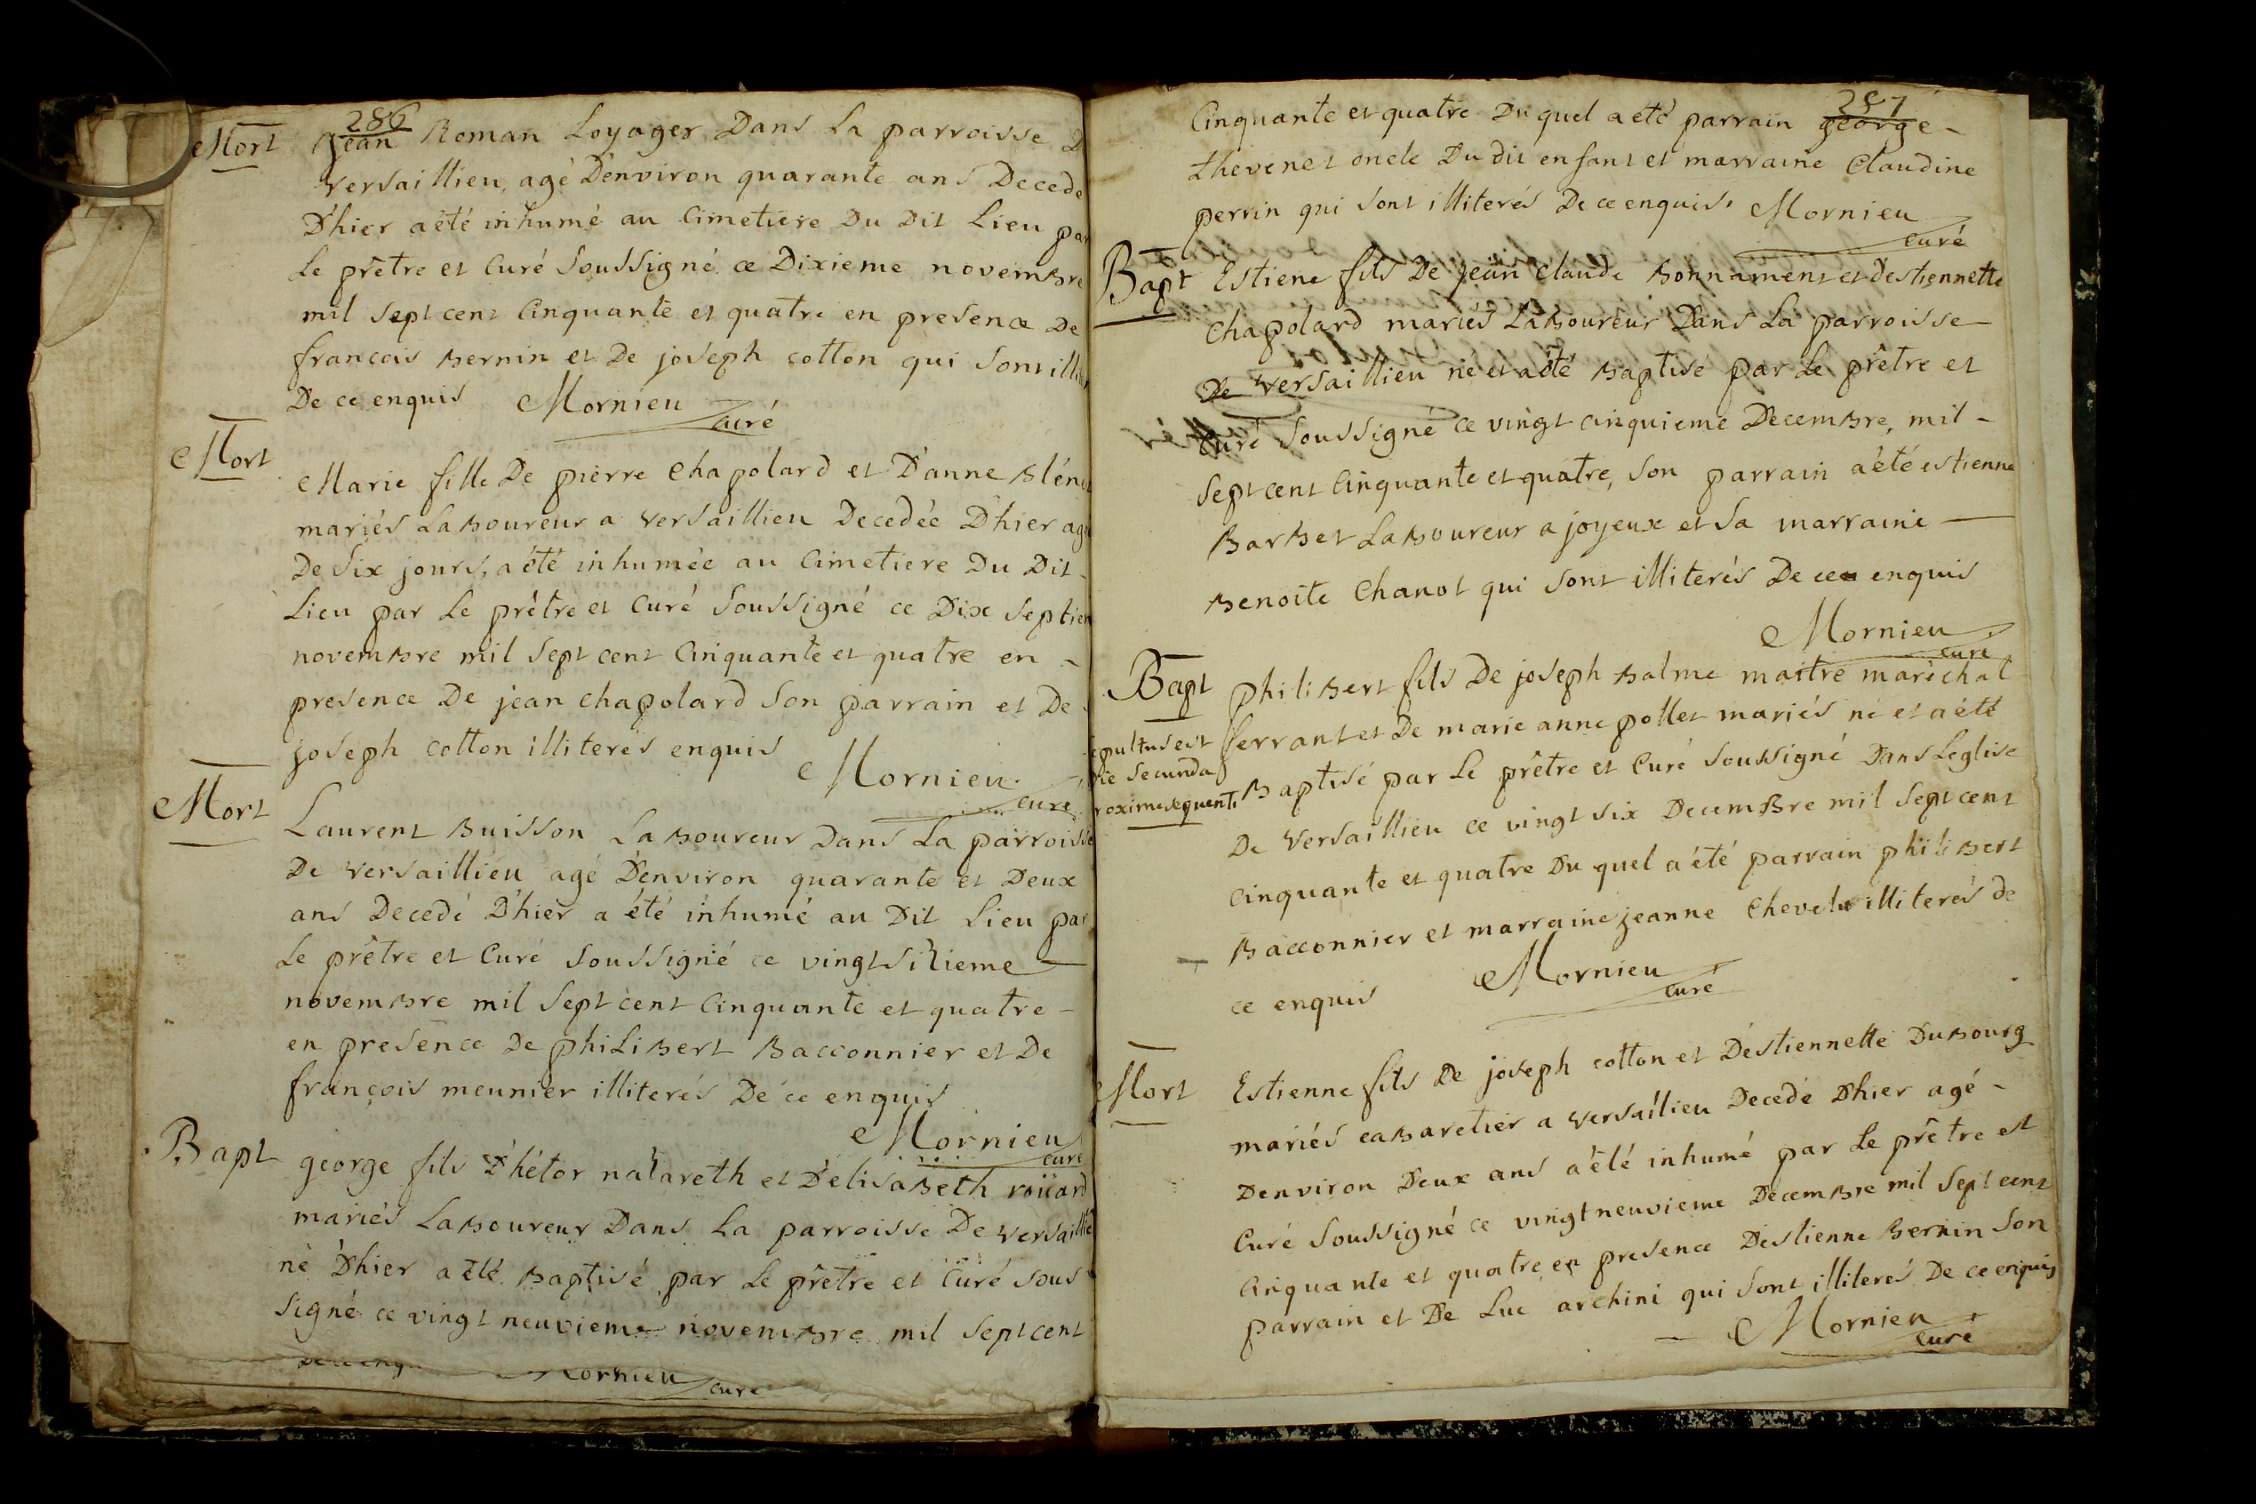 286
Mort
jean Roman Loyager Dans La parroisse D
versaillieu, agé D'environ quarante ans Decede
D'hier a été inhumé au Cimetiere Du Dit Lieu par
Le prêtre et Curé Soussigné ce Dixieme novembre
mil Sept cent Cinquante et quatre en presence De
francois Bernin et De joseph cotton qui Sont illit
De ce enquis Mornieu
curé
Mort
Marie fille De pierre Chapolard et D'anne Blén
mariés Laboureur a versaillieu Decedée D'hier agé
De Six jours, a été inhumée au Cimetiere Du Dit
Lieu par Le prêtre et Curé Soussigné ce Dix Septiem
novembre mil Sept cent Cinquante et quatre en -
presence De jean chapolard Son parrain et De
joseph cotton illiterés enquis
Mornieu
curé
Mort
Laurent Buisson Laboureur Dans La parroisse
De versaillieu agé D'environ quarante et Deux
ans Decedé D'hier a été inhumé au Dit Lieu par
Le prêtre et Curé Soussigné ce vingt sizieme
novembre mil Sept cent Cinquante et quatre -
en presence De phiLibert Bacconnier et De
françois meunier illiterés De ce enquis
Mornieu
curé
Bapt
george fils D'hétor nazareth et D'elisabeth roüard
mariés Laboureur Dans La parroisse De versaillie
né D'hier a été Baptisé par Le prêtre et Curé Sous
Signé ce vingt neuvieme novembre mil Sept cent
De ce enqu Mornieu
curé
287
Cinquante et quatre Du quel a eté parrain george -
thevenet oncle Du dit enfant et marraine Claudine
perrin qui Sont illiterés De ce enquis. Mornieu
curé
Bapt
Estiene fils De jean claude Bonnament et d'estiennette
Chapolard mariés Laboureur Dans La parroisse
De versaillieu né et a été Baptisé par Le prêtre et
Curé Soussigné ce vingt cinquieme Decembre, mil -
Sept cent Cinquante et quatre, Son parrain a été estienne
Barbet Laboureur a joyeux et Sa marraine
Benoite Chanot qui Sont illiterés De ce enquis
Mornieu
curé
Bapt
epultus est
Die Secunda
roxime sequenti
philibert fils De joseph Balme maitre maréchal
ferrant et De marie anne pollet mariés né et a été
Baptisé par Le prêtre et Curé Soussigné Dans Leglise
De Versaillieu ce vingt six Decembre mil Sept cent
Cinquante et quatre Du quel a été parrain philibert
Bacconnier et marraine jeanne Chevelu illiterés de
ce enquis Mornieu
curé
Mort
Estienne fils De joseph cotton et D'estiennette Dubourg
mariés cabaretier a versailieu Decedé D'hier agé -
Denviron Deux ans a été inhumé par Le prêtre et
Curé Soussigné ce vingt neuvieme Decembre mil Sept cent
Cinquante et quatre en presence D'estienne Bernin Son
parrain et De Luc archini qui Sont illiterés De ce enquis
Mornieu
curé